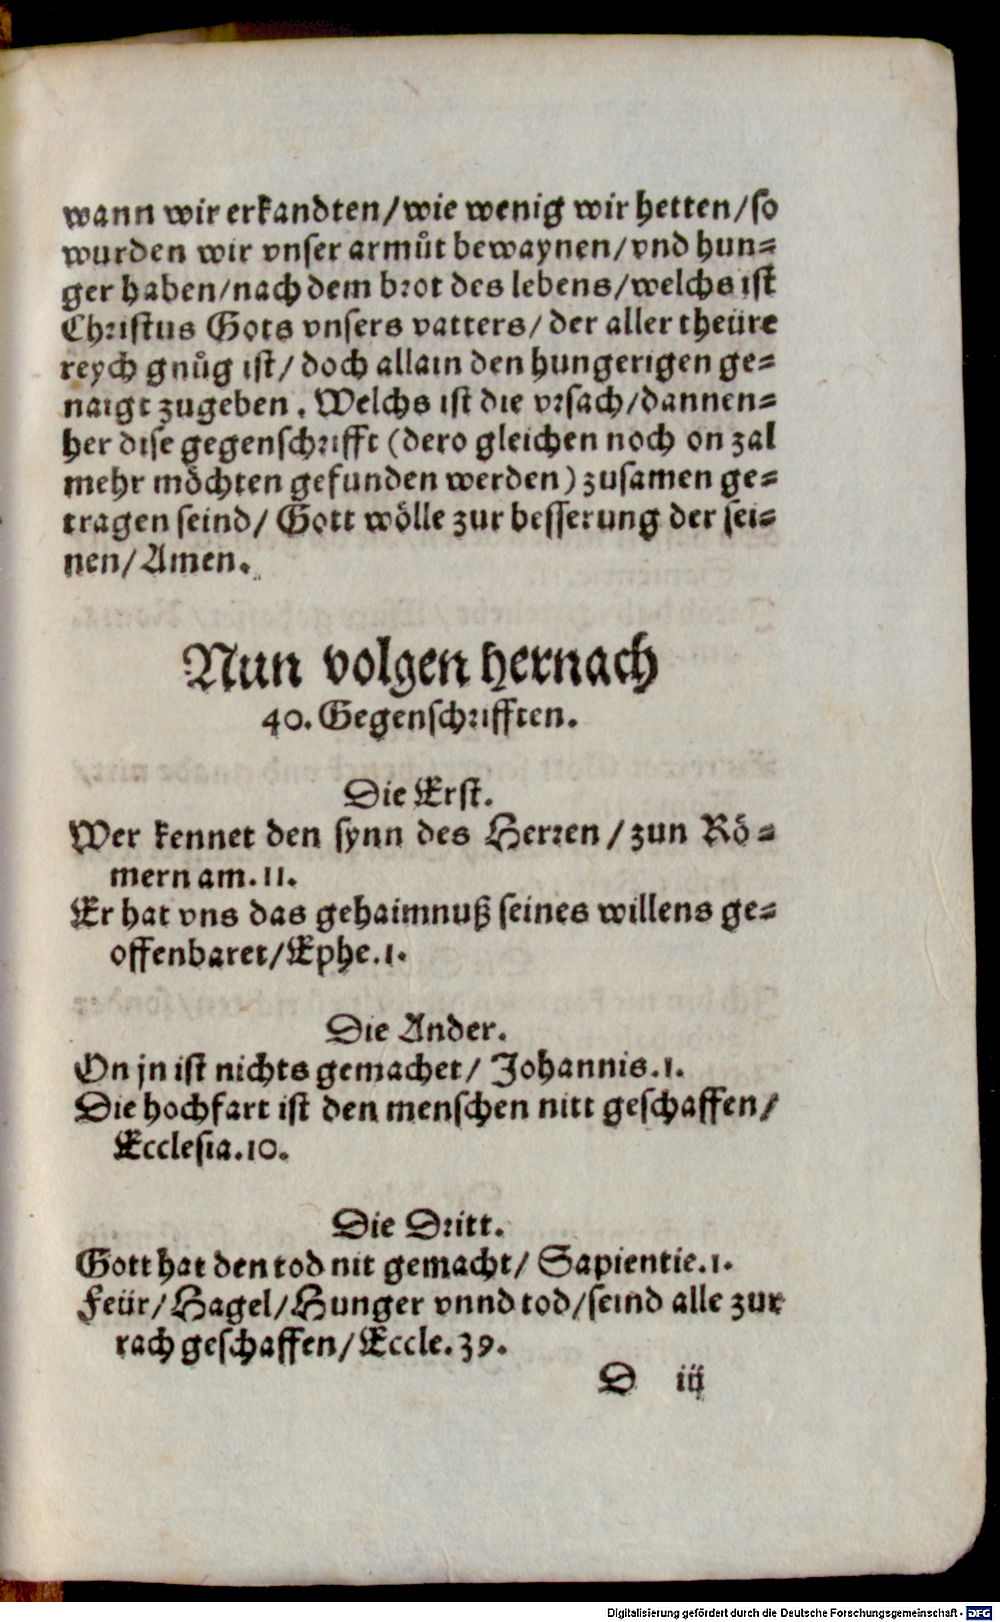 wann wir erkandten/wie wenig wir hetten/so
wurden wir vnser armůt bewaynen/vnd hun⸗
ger haben/nach dem brot des lebens/welchs ist
Christus Gots vnsers vatters/ der aller theüre
reych gnůg ist/ doch allain den hungerigen ge⸗
naigt zugeben. Welchs ist die vrsach/dannen⸗
her dise gegenschrifft (dero gleichen noch on zal
mehr möchten gefunden werden) zusamen ge⸗
tragen seind/ Gott wölle zur besserung der sei⸗
nen/Amen.
Nun volgen hernach
40. Gegenschrifften.
Die Erst.
Wer kennet den synn des Herren/zun Rö⸗
mern am. 11.
Er hat vns das gehaimnuß seines willens ge⸗
offenbaret/Ephe. 1.
Die Ander.
On jn ist nichts gemachet/ Johannis. 1.
Die hochfart ist den menschen nitt geschaffen/
Ecclesia. 10.
Die Dritt.
Gott hat den tod nit gemacht/ Sapientie. 1.
Feür/Hagel/Hunger vnnd tod/seind alle zur
rach geschaffen/Eccle. 39.
D iij
Digitalisierung gefördert durch die Deutsche Forschungsgemeinschaft - DFG